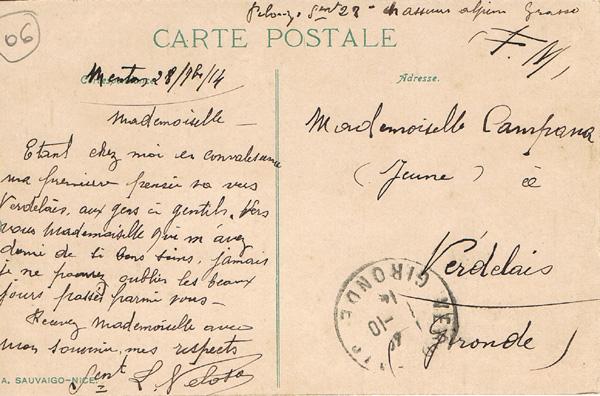 06
Sent 23e chasseurs alpin Grasse
CARTE POSTALE
(F.M)
Correspondance
Menton 28/9bre/14
Adresse.
Mademoiselle -
Etant chez moi en convalescence
ma première pensée va vers
Verdelais, aux gens si gentils. Vers
vous Mademoiselle qui m'avez
donné de si bons soins, jamais
je ne pourrez oublier les beaux
jours passés parmi vous -
Recevez Mademoiselle avec
mon souvenir, mes respects
Sent L. Veloso
A. SAUVAIGO-NICE.
Mademoiselle Campana
(Jeune) à
Verdelais
(Gironde)
GIRONDE
10
14